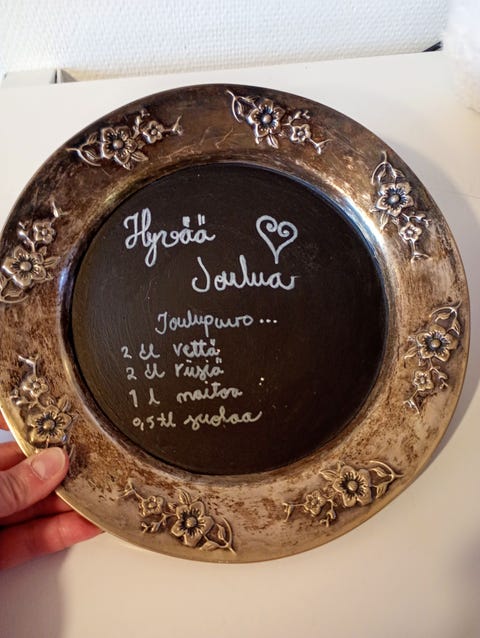 Hyvää
Joulua
Joulupuuro...
2 dl vettä
2 dl riisiä
1 l maitoa
0,5 tl suolaa